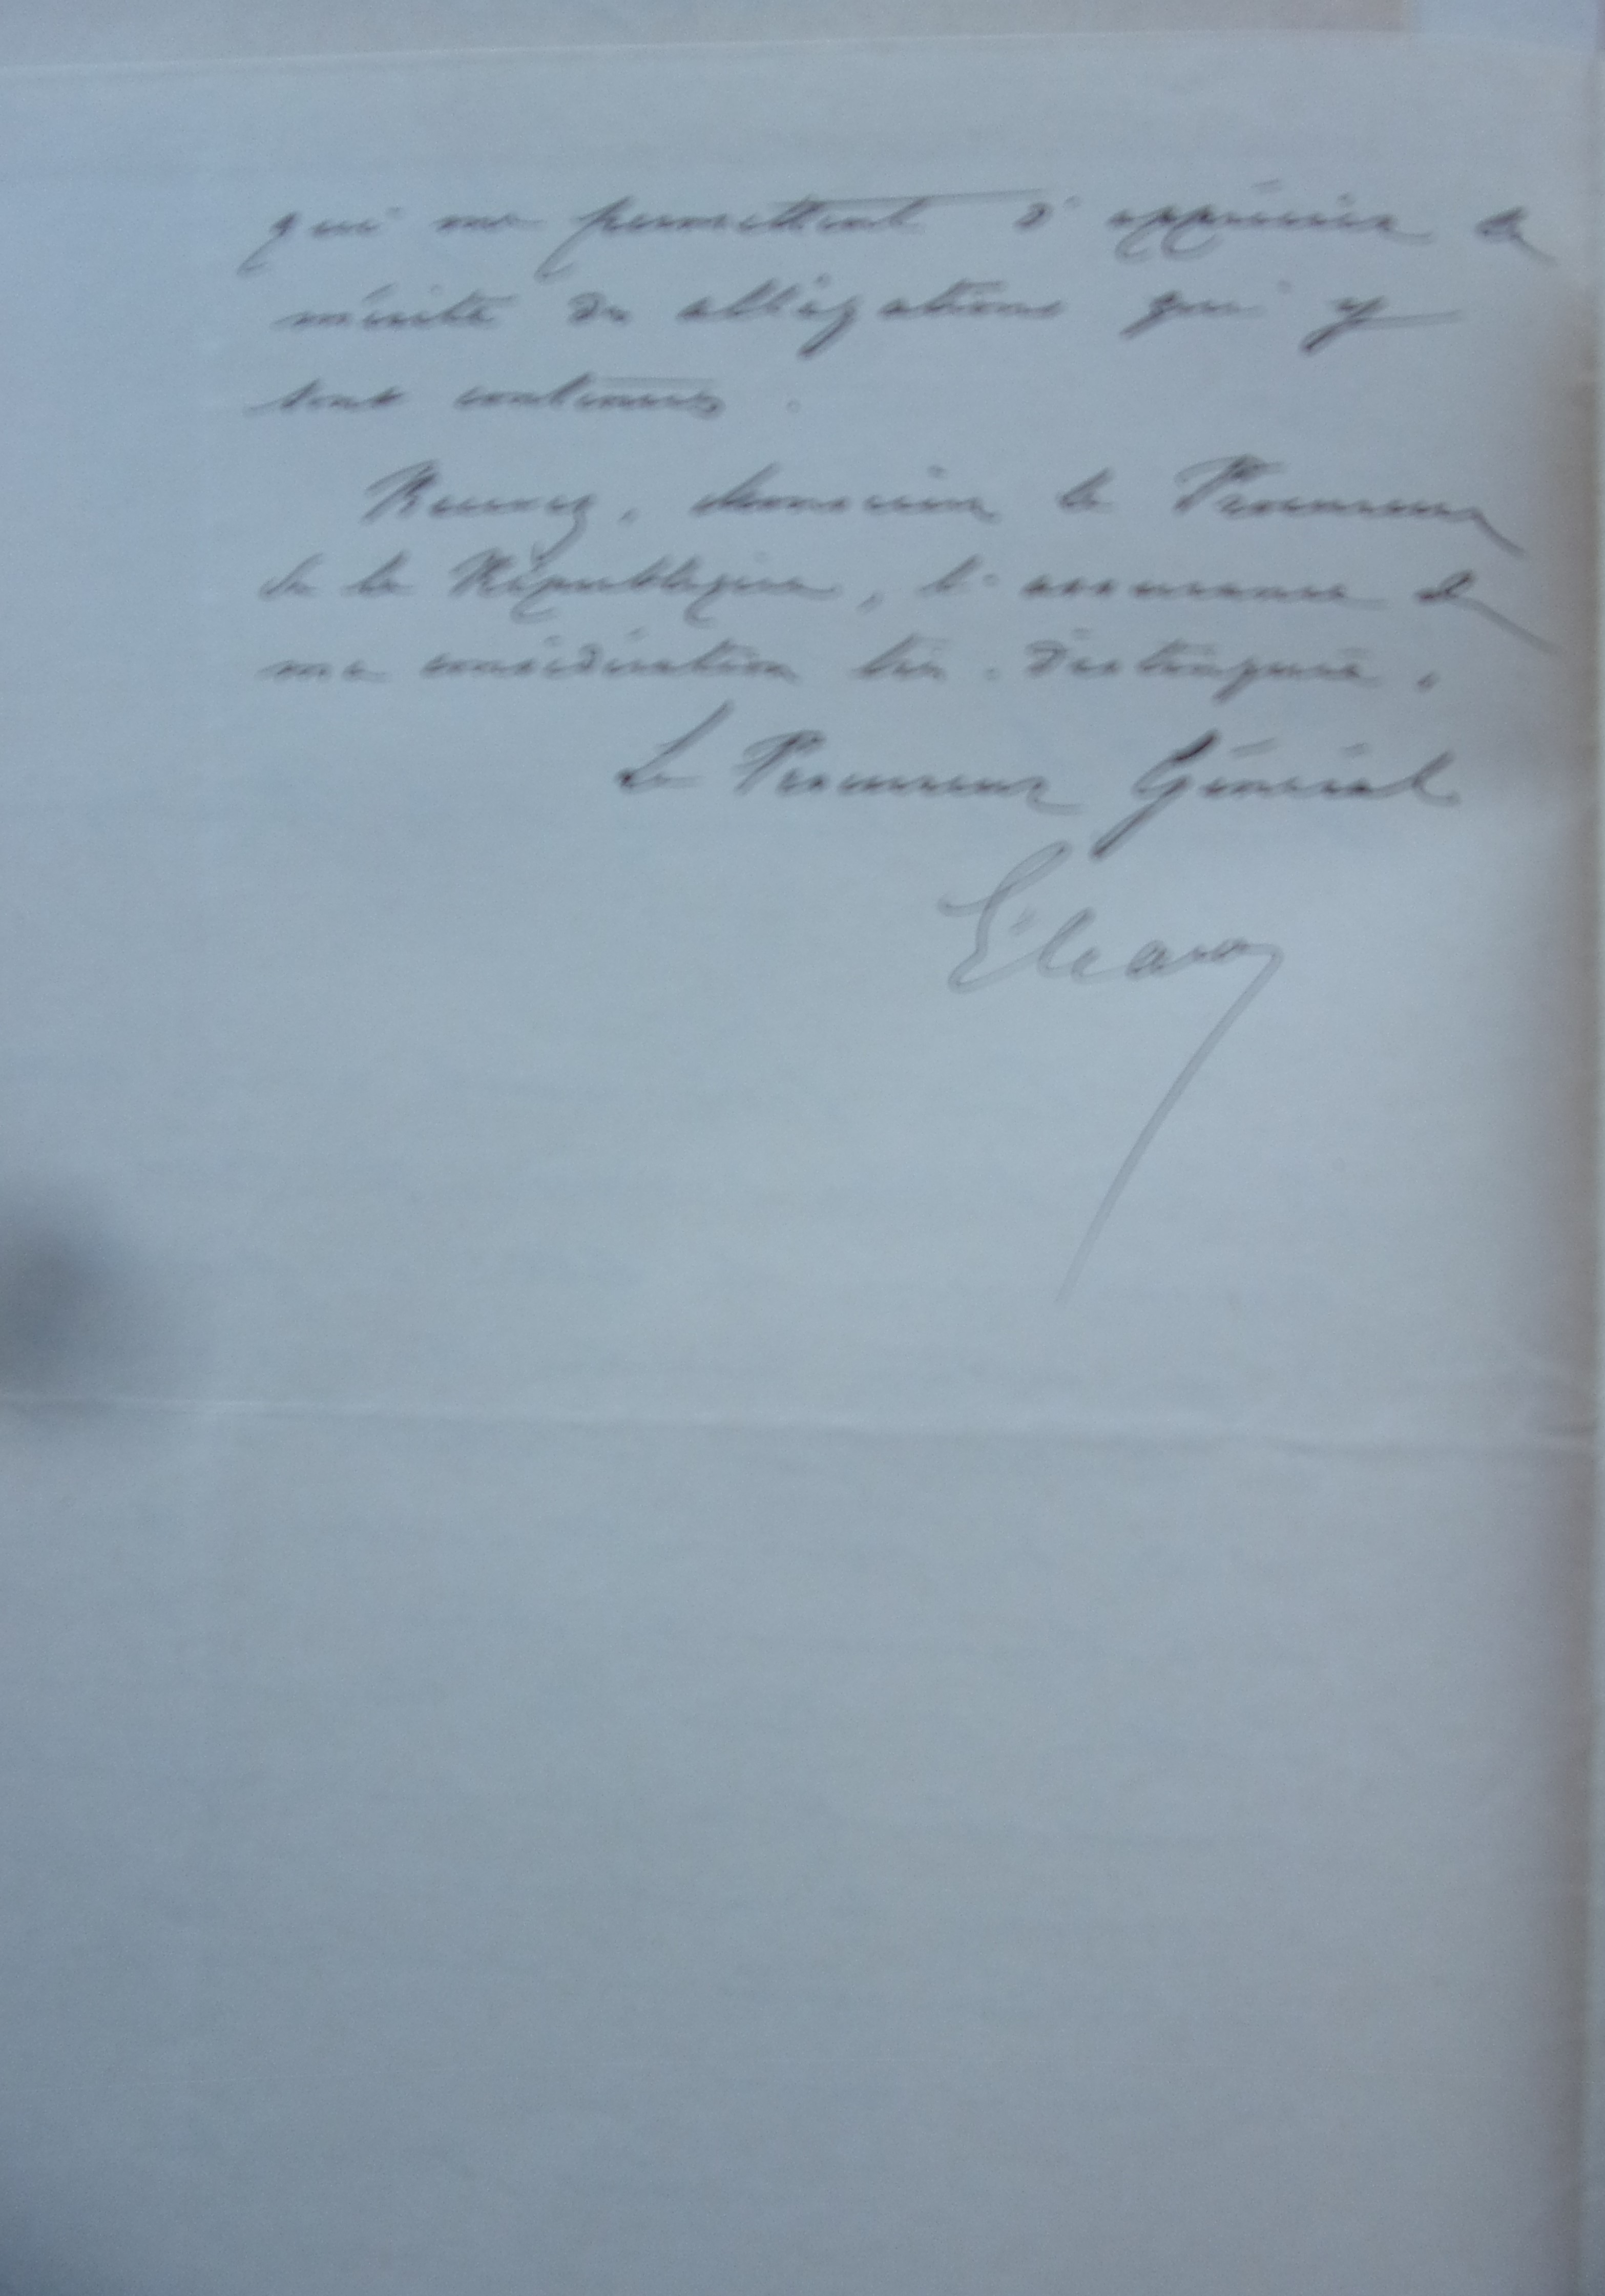 qui me permettent d'apprécier le
mérite des allégations qui y
sont contenues.
Recevez, Monsieur le Procureur
de la République, l'assurance de
ma considération très distinguée.
Le Procureur Général